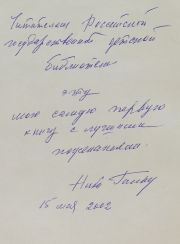 Читателям Российской
государственной детской
библиотеки
эту
мою самую первую
книгу с лучшими
пожеланиями.
15 мая 2002